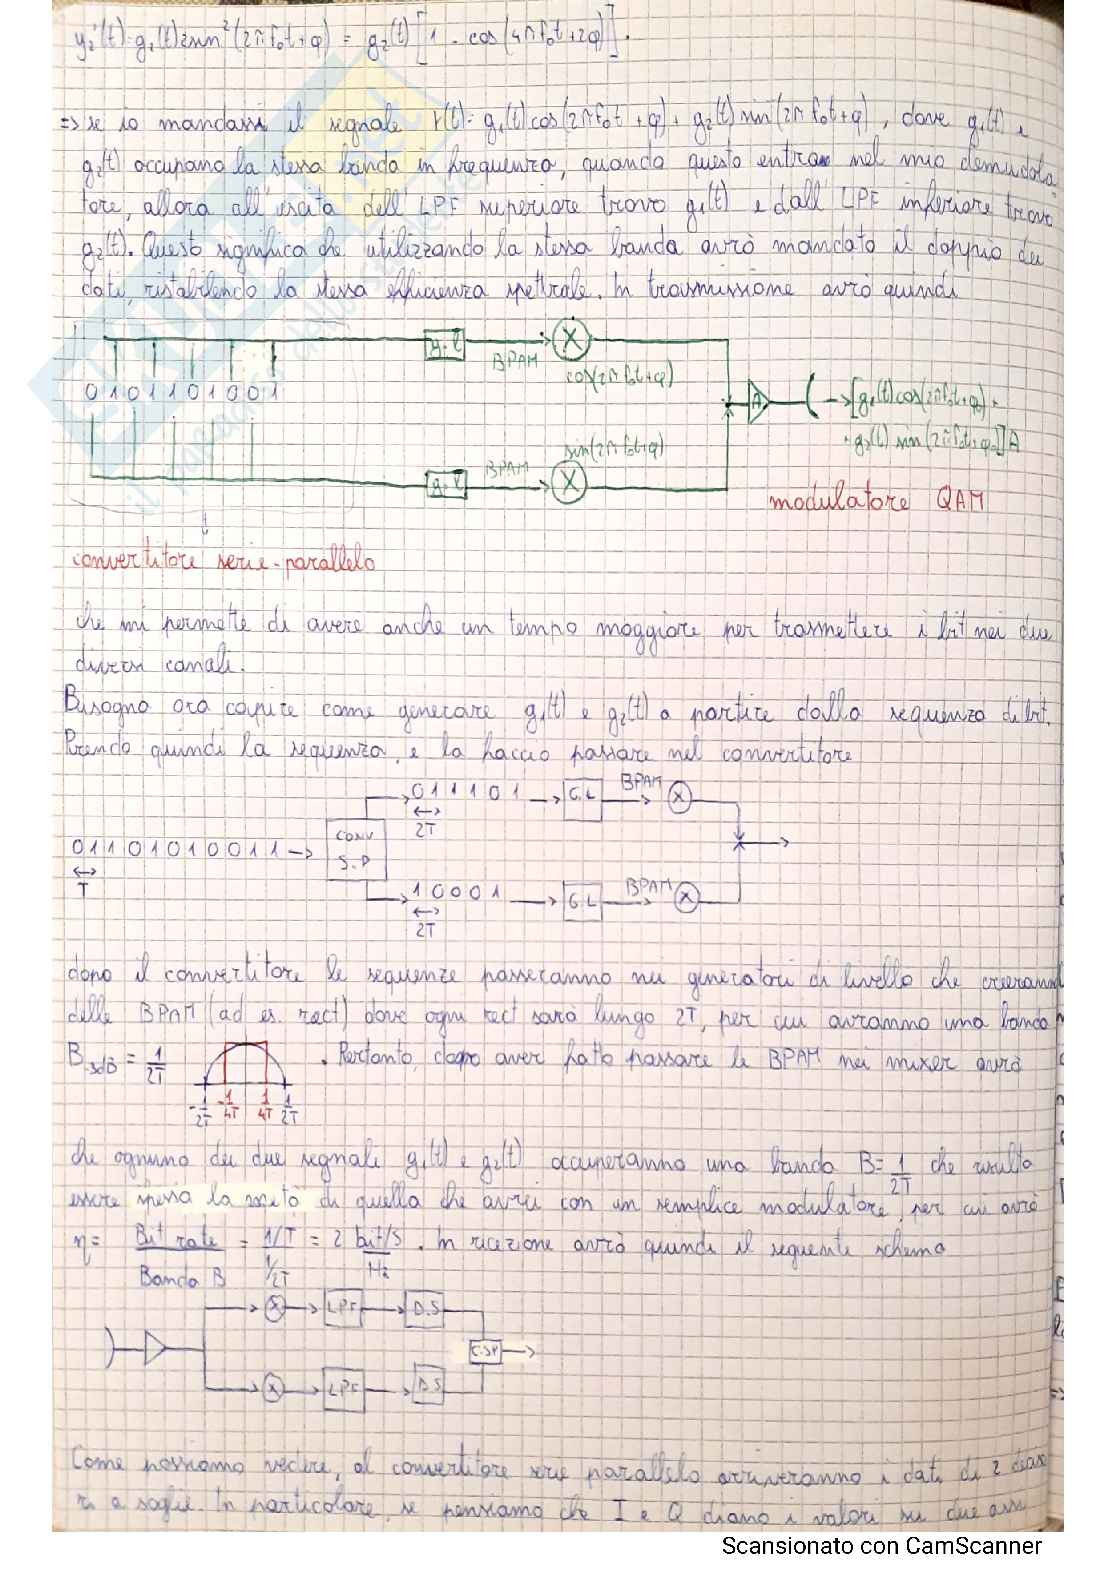 y₂'(t) = g₂(t) 2 sin²(2πf₀t+φ) = g₂(t) [1 - cos(4πf₀t+2φ)].
=> se io mandassi il segnale r(t) = g₁(t) cos(2πf₀t+φ) + g₂(t) sin(2πf₀t+φ), dove g₁(t) e
g₂(t) occupano la stessa banda in frequenza, quando questo entra nel mio demodula
tore, allora all'uscita dell'LPF superiore trovo g₁(t) e dall'LPF inferiore trovo
g₂(t). Questo significa che utilizzando la stessa banda avrò mandato il doppio dei
dati, ristabilendo la stessa efficienza spettrale. In trasmissione avrò quindi
G.L BPAM X cos(2πf₀t+φ)
0 1 0 1 1 0 1 0 0 1
A -> [g₁(t) cos(2πf₀t+φ₀) +
+ g₂(t) sin(2πf₀t+φ₀)] A
G.L BPAM X sin(2πf₀t+φ)
modulatore QAM
convertitore serie-parallelo
che mi permette di avere anche un tempo maggiore per trasmettere i bit nei due
diversi canali.
Bisogna ora capire come generare g₁(t) e g₂(t) a partire dalla sequenza di bit.
Prendo quindi la sequenza, e la faccio passare nel convertitore
0 1 1 1 0 1 -> G.L BPAM X
2T
0 1 1 1 0 1 0 1 0 0 1 1 -> CONV S.P
T
1 0 0 0 1 -> G.L BPAM X
2T
dopo il convertitore le sequenze passeranno nei generatori di livello che creeranno
delle BPAM (ad es. rect) dove ogni rect sarà lungo 2T, per cui avranno una banda
B-3dB = 1/2T . Pertanto, dopo aver fatto passare le BPAM nei mixer avrò
-1/2T -1/4T 1/4T 1/2T
che ognuno dei due segnali g₁(t) e g₂(t) occuperanno una banda B = 1/2T che risulta
essere spessa la metà di quella che avrei con un semplice modulatore, per cui avrò
η = Bit rate / Banda B = 1/T / 1/2T = 2 bit/s / Hz . In ricezione avrò quindi il seguente schema
X LPF D.S
C.SP
X LPF D.S
Come possiamo vedere, al convertitore serie parallelo arriveranno i dati di 2
a soglie. In particolare, se pensiamo che I e Q diano i valori su due assi
Scansionato con CamScanner